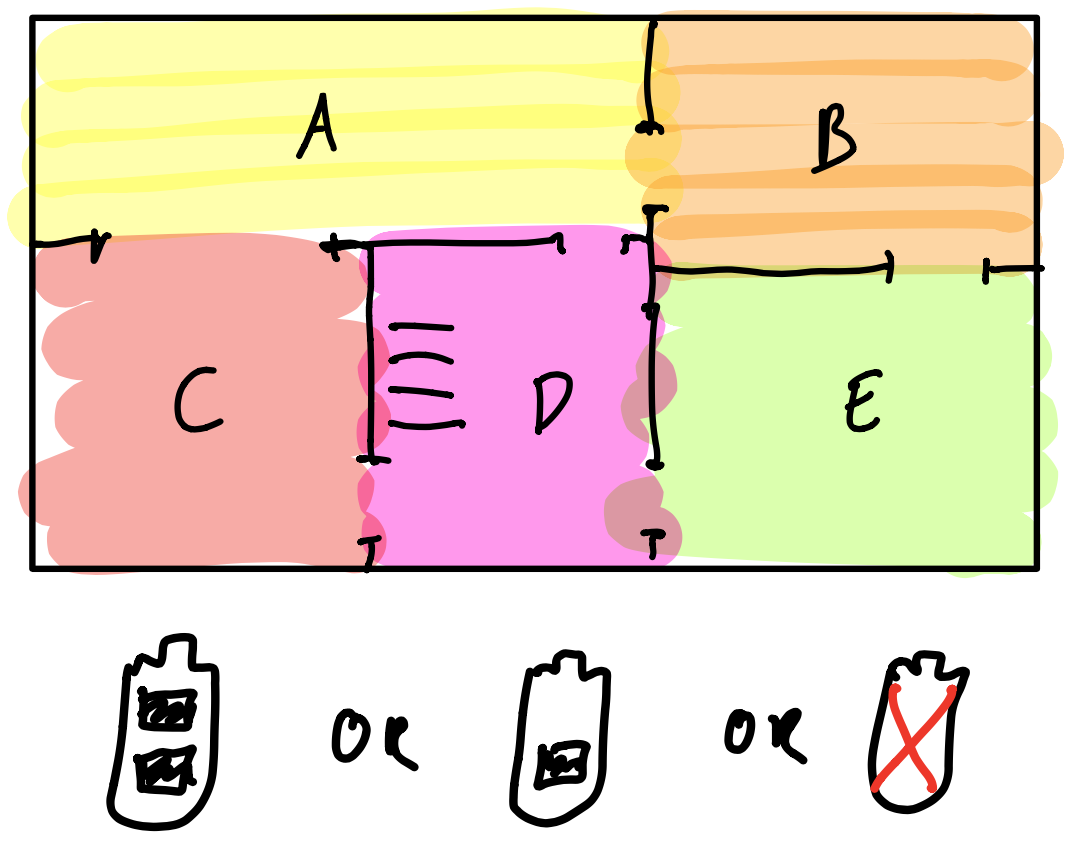 A
B
C
D
E
OR OR